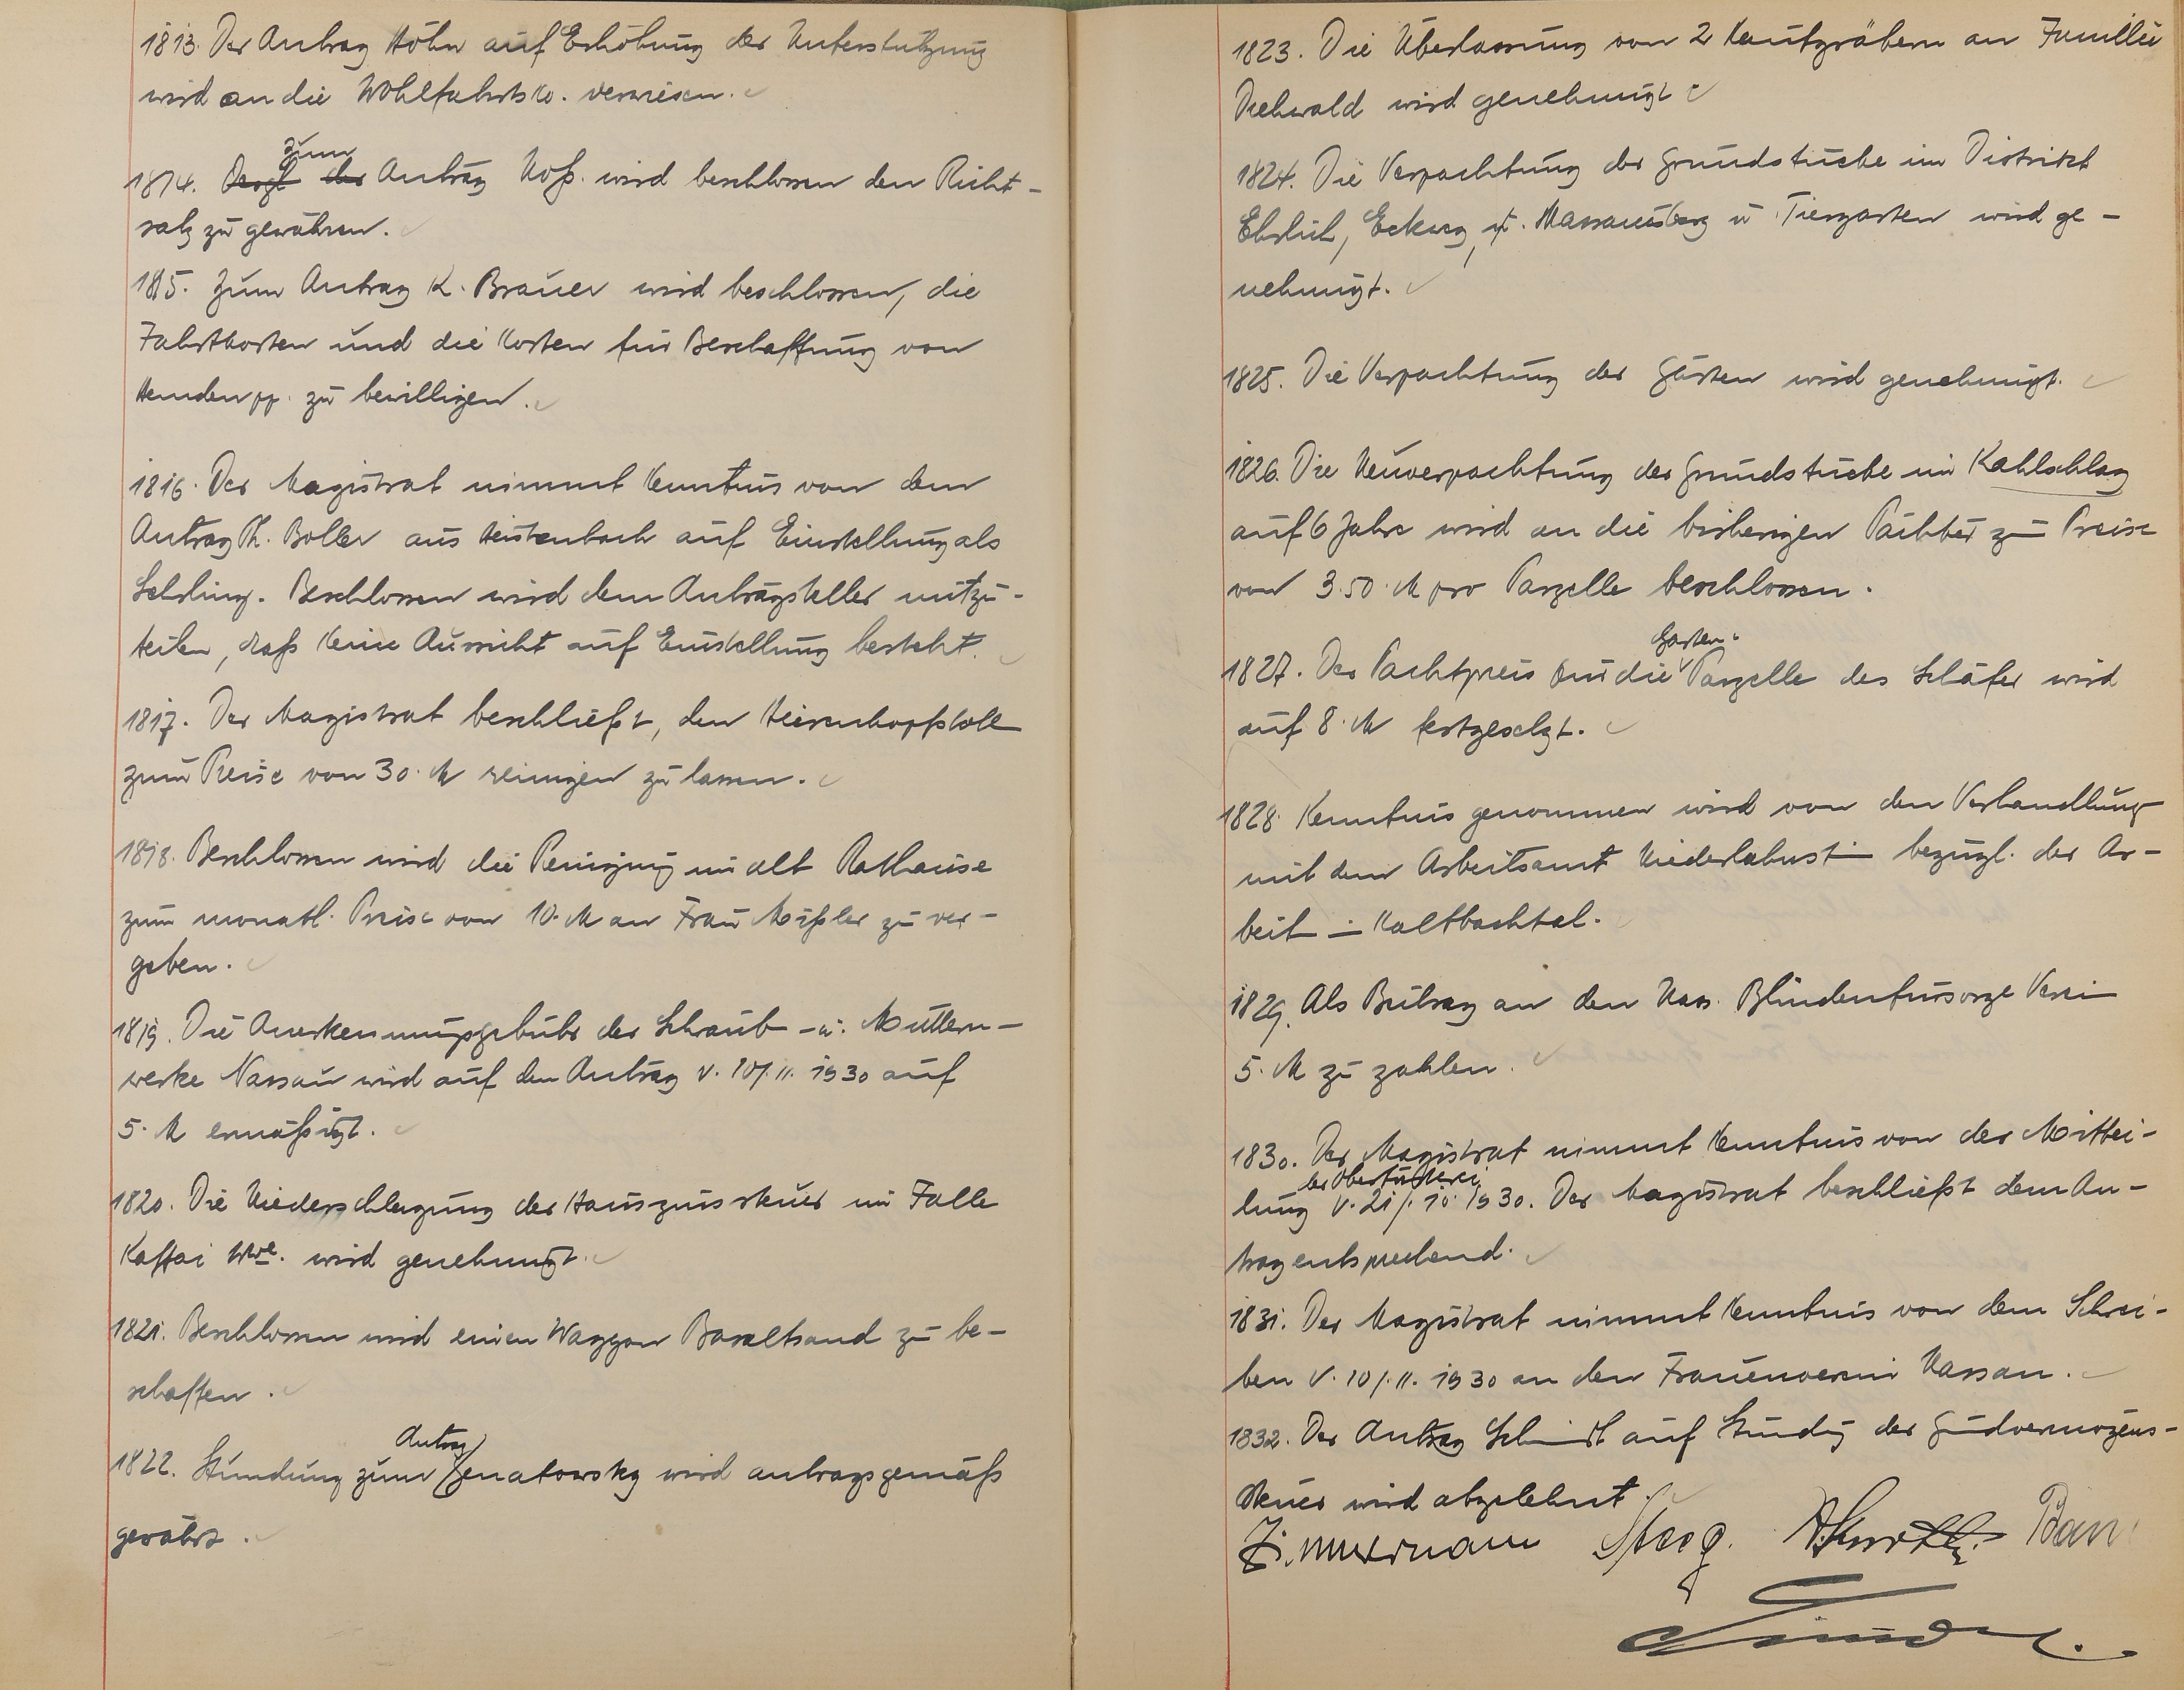 1813. Der Antrag Höhn auf Erhöhung der Unterstützung
wird an die Wohlfahrtsko. verwiesen.
zum
1814. Desgl der Antrag Voß. wird beschlossen den Richt-
satz zu gewähren.
1815. Zum Antrag K. Brauer wird beschlossen, die
Fahrtkosten und die Kosten für Beschaffung von
Hemden pp. zu bewilligen.
1816. Der Magistrat nimmt Kenntnis von dem
Antrag Th. Boller aus Heistenbach auf Einstellung als
Lehrling. Beschlossen wird dem Antragsteller mitzu-
teilen, daß keine Aussicht auf Einstellung besteht.
1817. Der Magistrat beschließt, den
zum Preise von 30. M reinigen zu lassen.
1818. Beschlossen wird die Reinigung im alt Rathause
zum monatl. Preise von 10. M an Frau Mißler zu ver-
geben.
1819. Die Anerkennungsgebühr der Schraub- u. Muttern-
werke Nassau wird auf den Antrag v. 10/.11. 1930 auf
5. M ermäßigt.
1820. Die Niederschlagung der Hauszinssteuer im Falle
Kaffai Wwe. wird genehmigt.
1821. Beschlossen wird einen Waggon Basaltsand zu be-
schaffen.
Antrag
1822. Stundung zum wird antragsgemäß
gewährt.
1823. Die Überlassung von 2 Kaufgräbern an Familie
wird genehmigt
1824. Die Verpachtung der Grundstücke im Distrikt
Ehrlich, Eckweg, u. Nassauerberg u Tiergarten wird ge-
nehmigt.
1825. Die Verpachtung der Gärten wird genehmigt.
1826. Die Neuverpachtung der Grundstücke im Kahlschlag
auf 6 Jahre wird an die bisherigen Pächter zu Preise
von 3.50. M pro Parzelle beschlossen.
Garten-
1827. Der Pachtpreis für die Parzelle des Schäfer wird
auf 8. M festgesetzt.
1828. Kenntnis genommen wird von den Verhandlung
mit dem Arbeitsamt Niederlahnstein bezügl. der Ar-
beit im Kaltbachtal.
1829. Als Beitrag an den Nass. Blindenfürsorge Verein
5. M zu zahlen.
1830. Der Magistrat nimmt Kenntnis von der Mittei-
der Oberförsterei
lung v. 21/.10. 1930. Der Magistrat beschließt dem An-
trag entsprechend.
1831. Der Magistrat nimmt Kenntnis von dem Schrei-
ben v. 10/.11. 1930 an den Frauenverein Nassau.
1832. Der Antrag Schmidt auf Stundg der Grundvermögens-
steuer wird abgelehnt.
Zimmermann